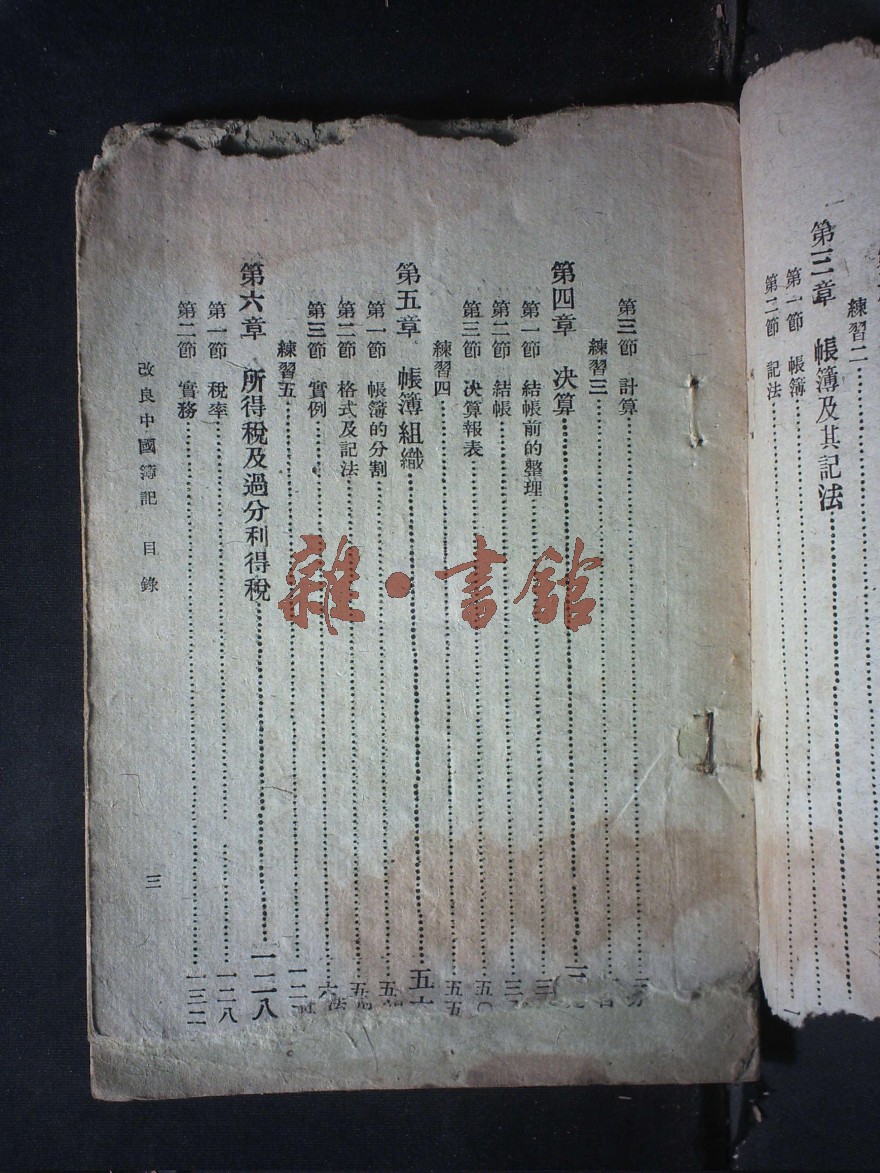 練習二
第三章 帳簿及其記法
第一節 帳簿
第二節 記法
第三節 計算
練習三
第四章 決算
第一節 結帳前的整理
第二節 結帳
第三節 決算報表 五〇
練習四 五五
第五章 帳簿組織
第一節 帳簿的分割
第二節 格式及記法
第三節 實例
練習五
第六章 所得稅及過分利得稅 一二八
第一節 稅率 一二八
第二節 實務 一三二
改良中國簿記 目錄 三
雜·書館